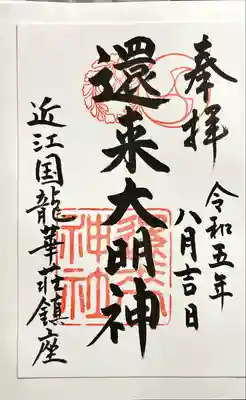 奉拝
令和五年
八月吉日
還来大明神
還来神社
近江国龍華荘鎮座